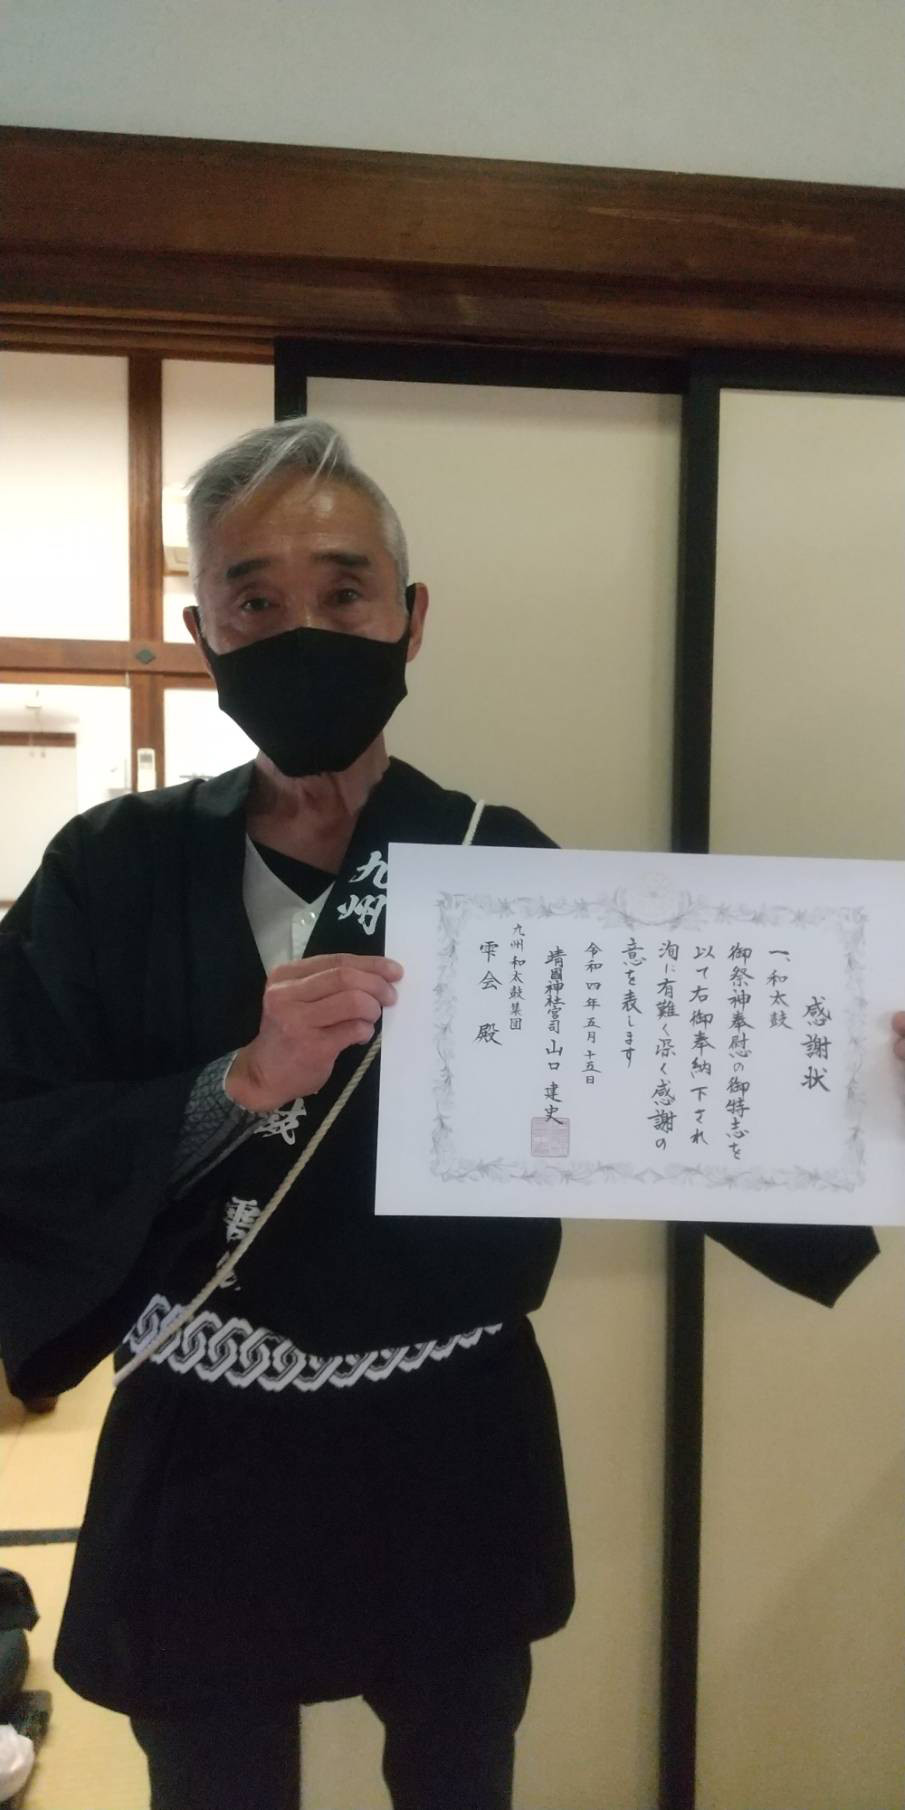 感謝状
一、和太鼓
御祭神奉慰の御特志を
以て右御奉納下され
洵に有難く深く感謝の
意を表します
令和四年五月十五日
靖國神社宮司 山口建史
九州和太鼓集団
雫会 殿
九州
雫